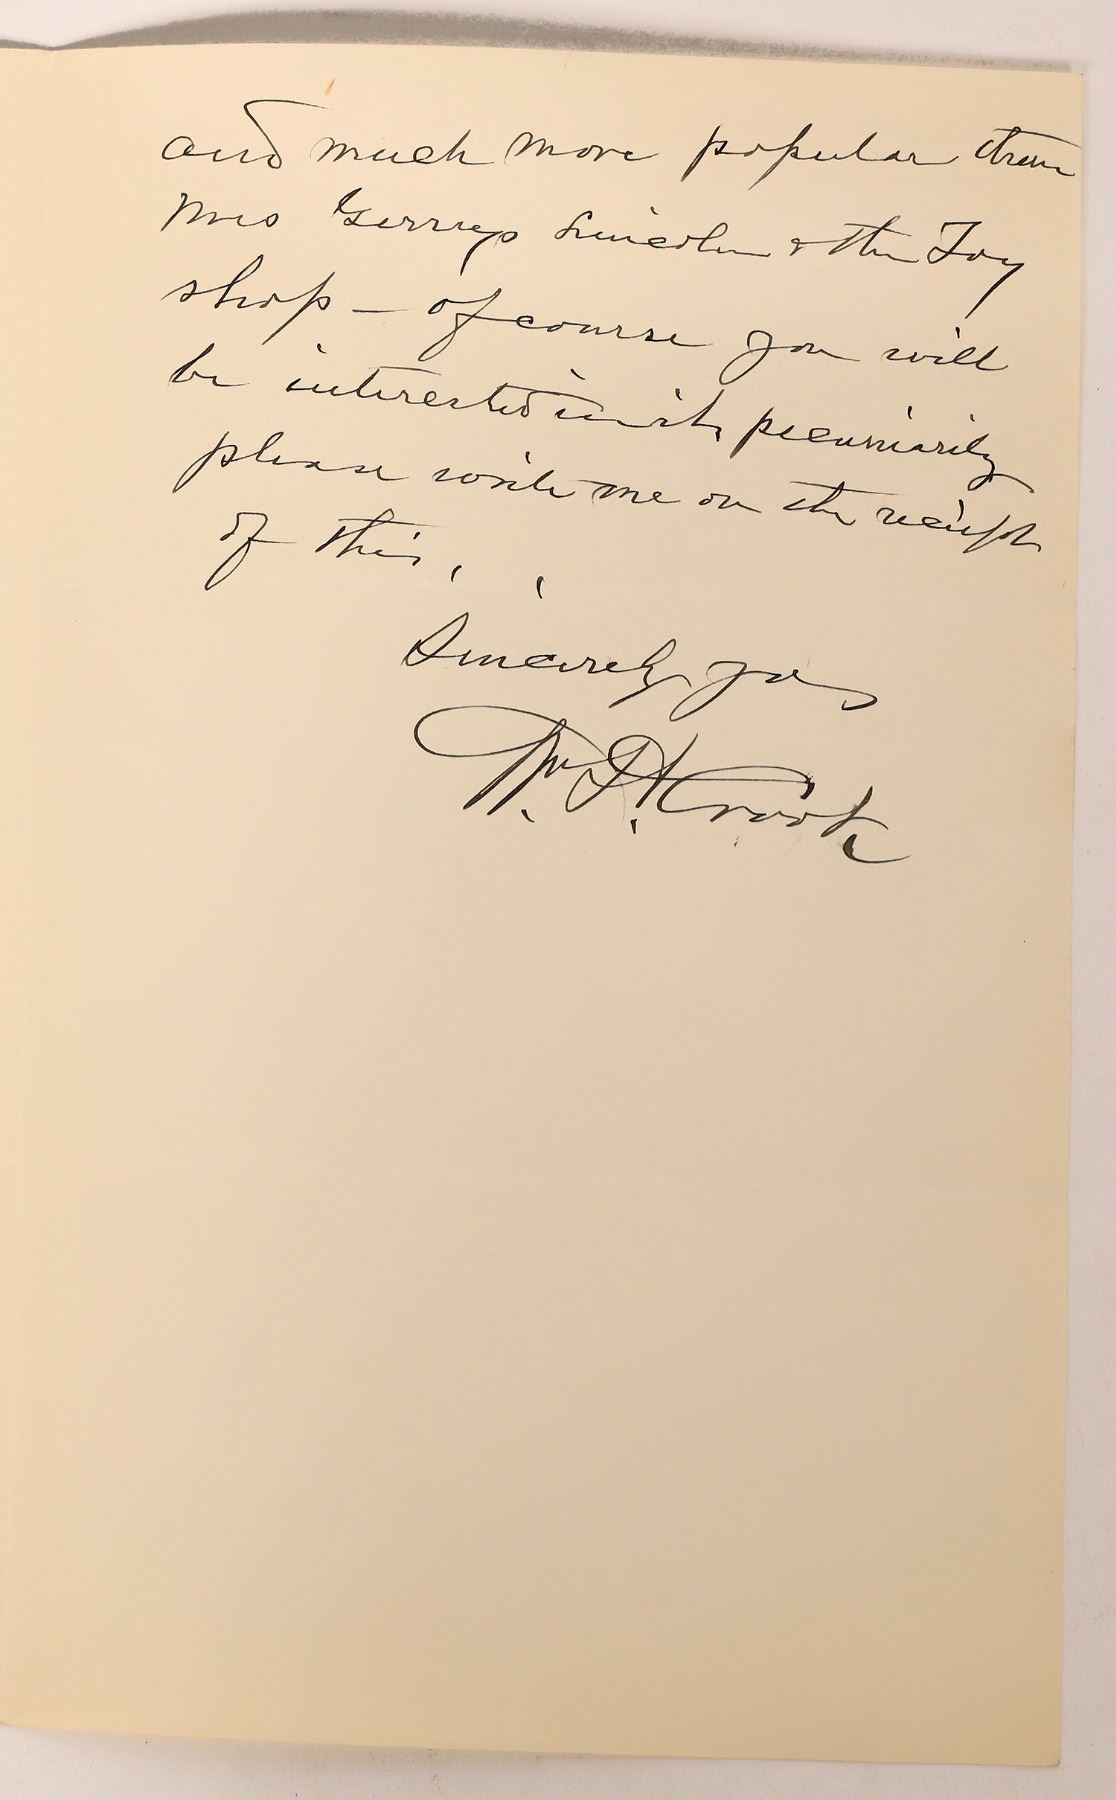 and much more popular than
Mrs Gerrys Lincoln & the Toy
shop — of course you will
be interested in it, pecuniarily
please write me on the receipt
of this,
Sincerely yos
Wm. H. Crook